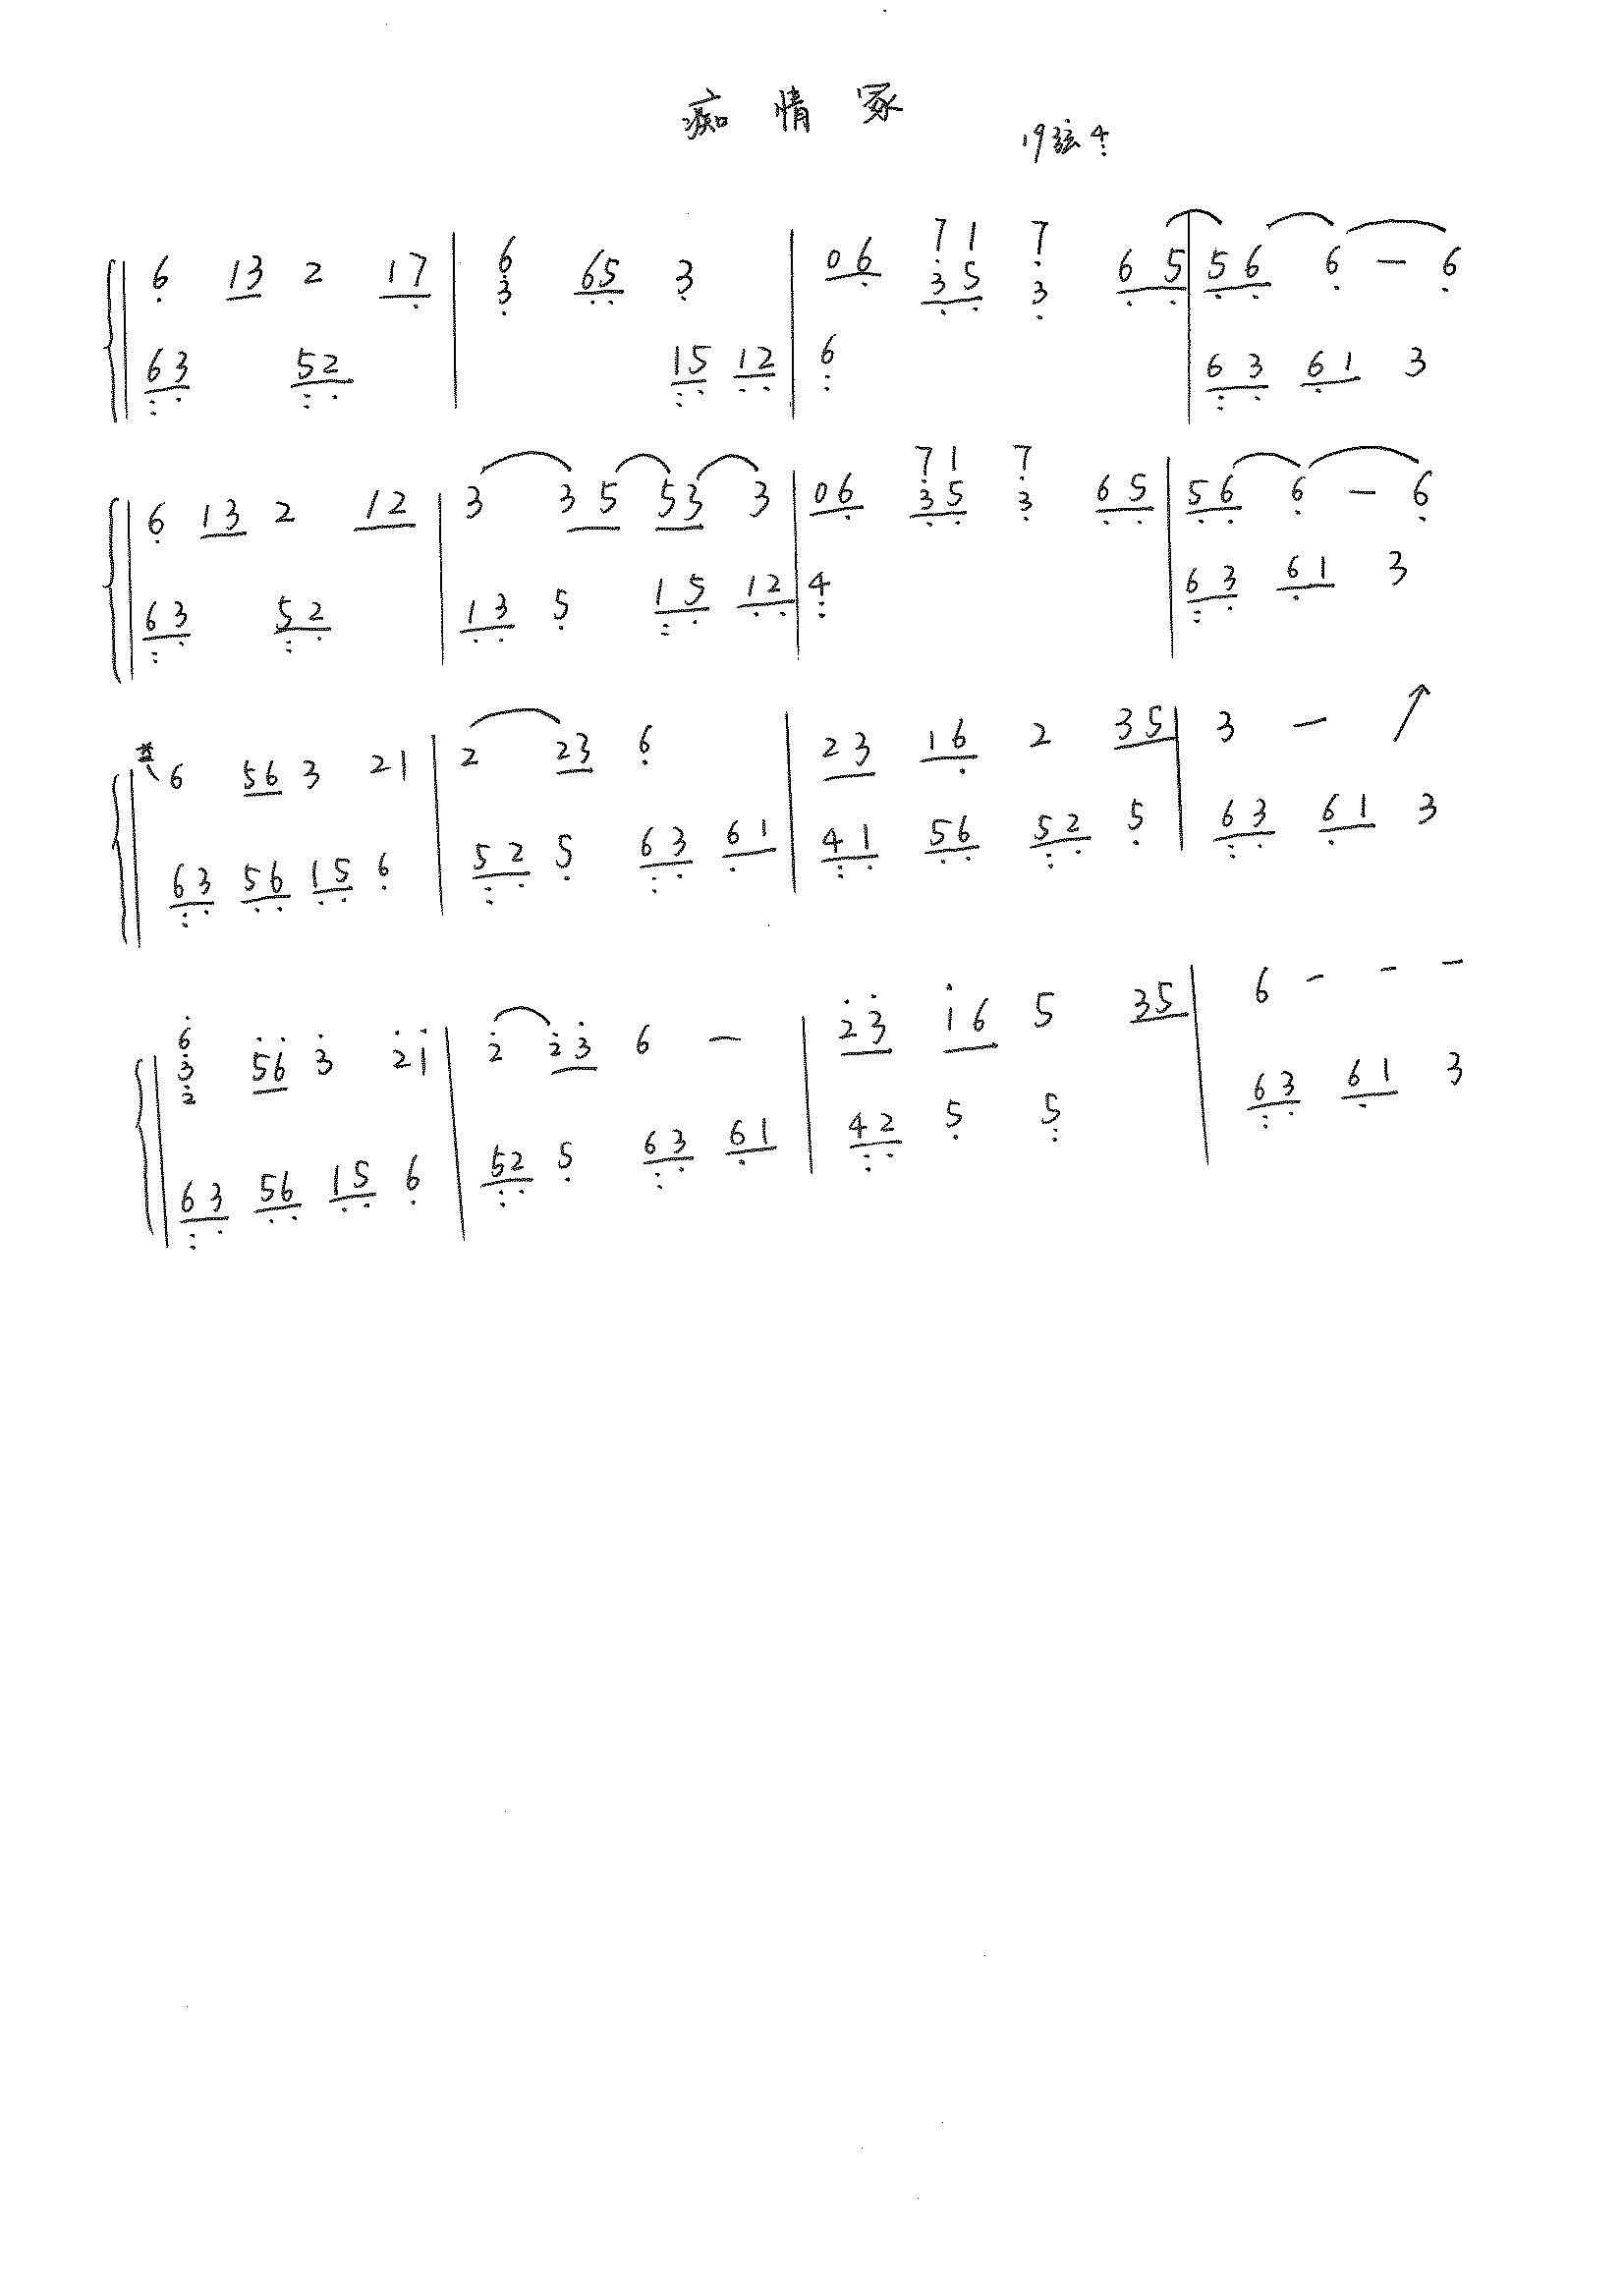 痴情冢
19弦4
6 13 2 17 | 6 65 3 | 06 71 7 65 | 56 6 — 6
3 35 3
63 52 | 15 12 | 6 | 63 61 3
6 13 2 12 | 3 35 53 3 | 06 71 7 65 | 56 6 — 6
35 3
63 52 | 13 5 15 12 | 4 | 63 61 3
6 56 3 21 | 2 23 6 | 23 16 2 35 | 3 — ↗
63 56 15 6 | 52 5 63 61 | 41 56 52 5 | 63 61 3
6 56 3 21 | 2 23 6 — | 23 16 5 35 | 6 — — —
3
2
63 56 15 6 | 52 5 63 61 | 42 5 5 | 63 61 3